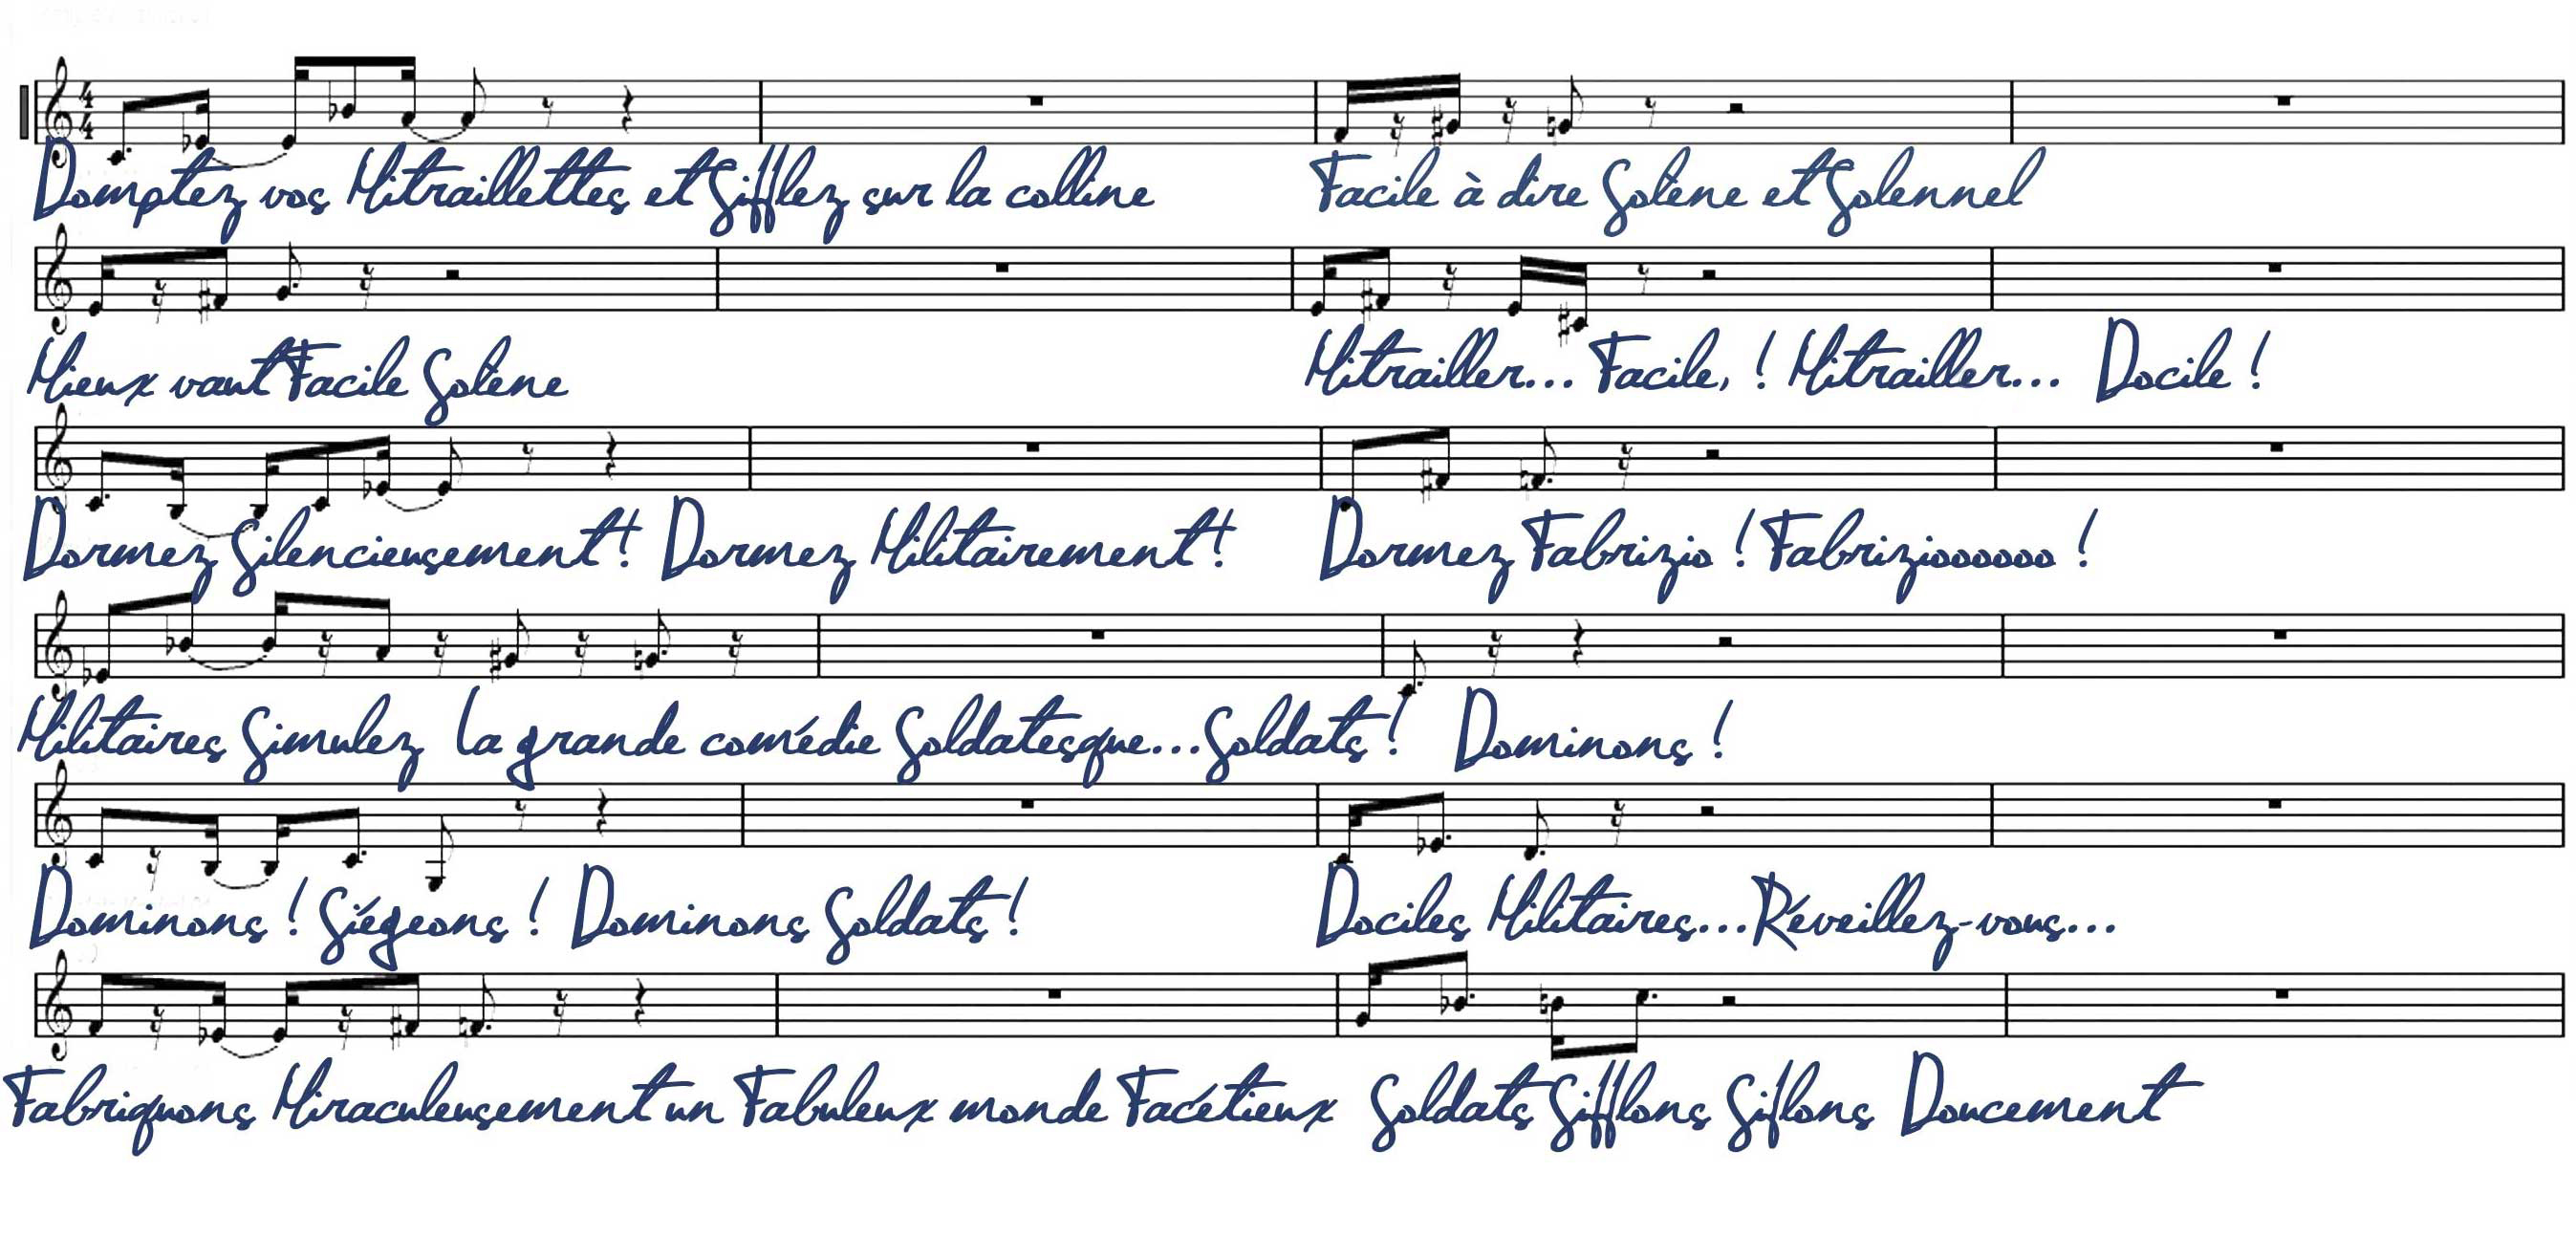 Domptez vos Mitraillettes et Sifflez sur la colline Facile à dire Solène et Solennel
Mieux vaut Facile Solène Mitrailler... Facile, ! Mitrailler... Docile !
Dormez Silencieusement! Dormez Militairement! Dormez Fabrizio ! Fabrizioooooo !
Militaires Simulez La grande comédie Soldatesque...Soldats! Dominons !
Dominons ! Siégeons ! Dominons Soldats ! Dociles Militaires...Réveillez-vous...
Fabriquons Miraculeusement un Fabuleux monde Facétieux Soldats Sifflons Siflons Doucement